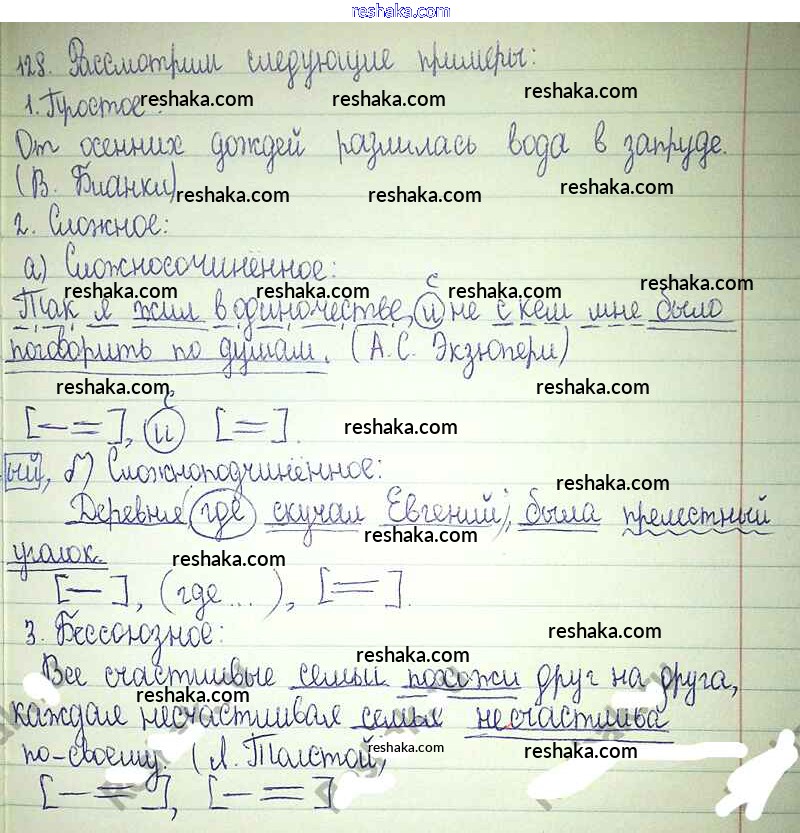 reshaka.com
128. Рассмотрим следующие примеры:
1. Простое:
reshaka.com reshaka.com
От осенних дождей разлилась вода в запруде.
(В. Бианки)
reshaka.com reshaka.com reshaka.com
2. Сложное:
а) Сложносочинённое:
с
reshaka.com reshaka.com reshaka.com reshaka.com
Так я жил в одиночестве, и не с кем мне было
поговорить по душам. (А.С. Экзюпери)
reshaka.com reshaka.com reshaka.com
с
[— =], и [=].
reshaka.com
ый, б) Сложноподчинённое:
reshaka.com
Деревня, где скучал Евгений, была прелестный
reshaka.com
уголок.
reshaka.com reshaka.com
[—], (где...), [=].
3. Бессоюзное:
reshaka.com
reshaka.com
Все счастливые семьи похожи друг на друга,
reshaka.com reshaka.com
каждая несчастливая семья несчастлива
по-своему. (Л. Толстой)
reshaka.com reshaka.com
[— =], [— =]